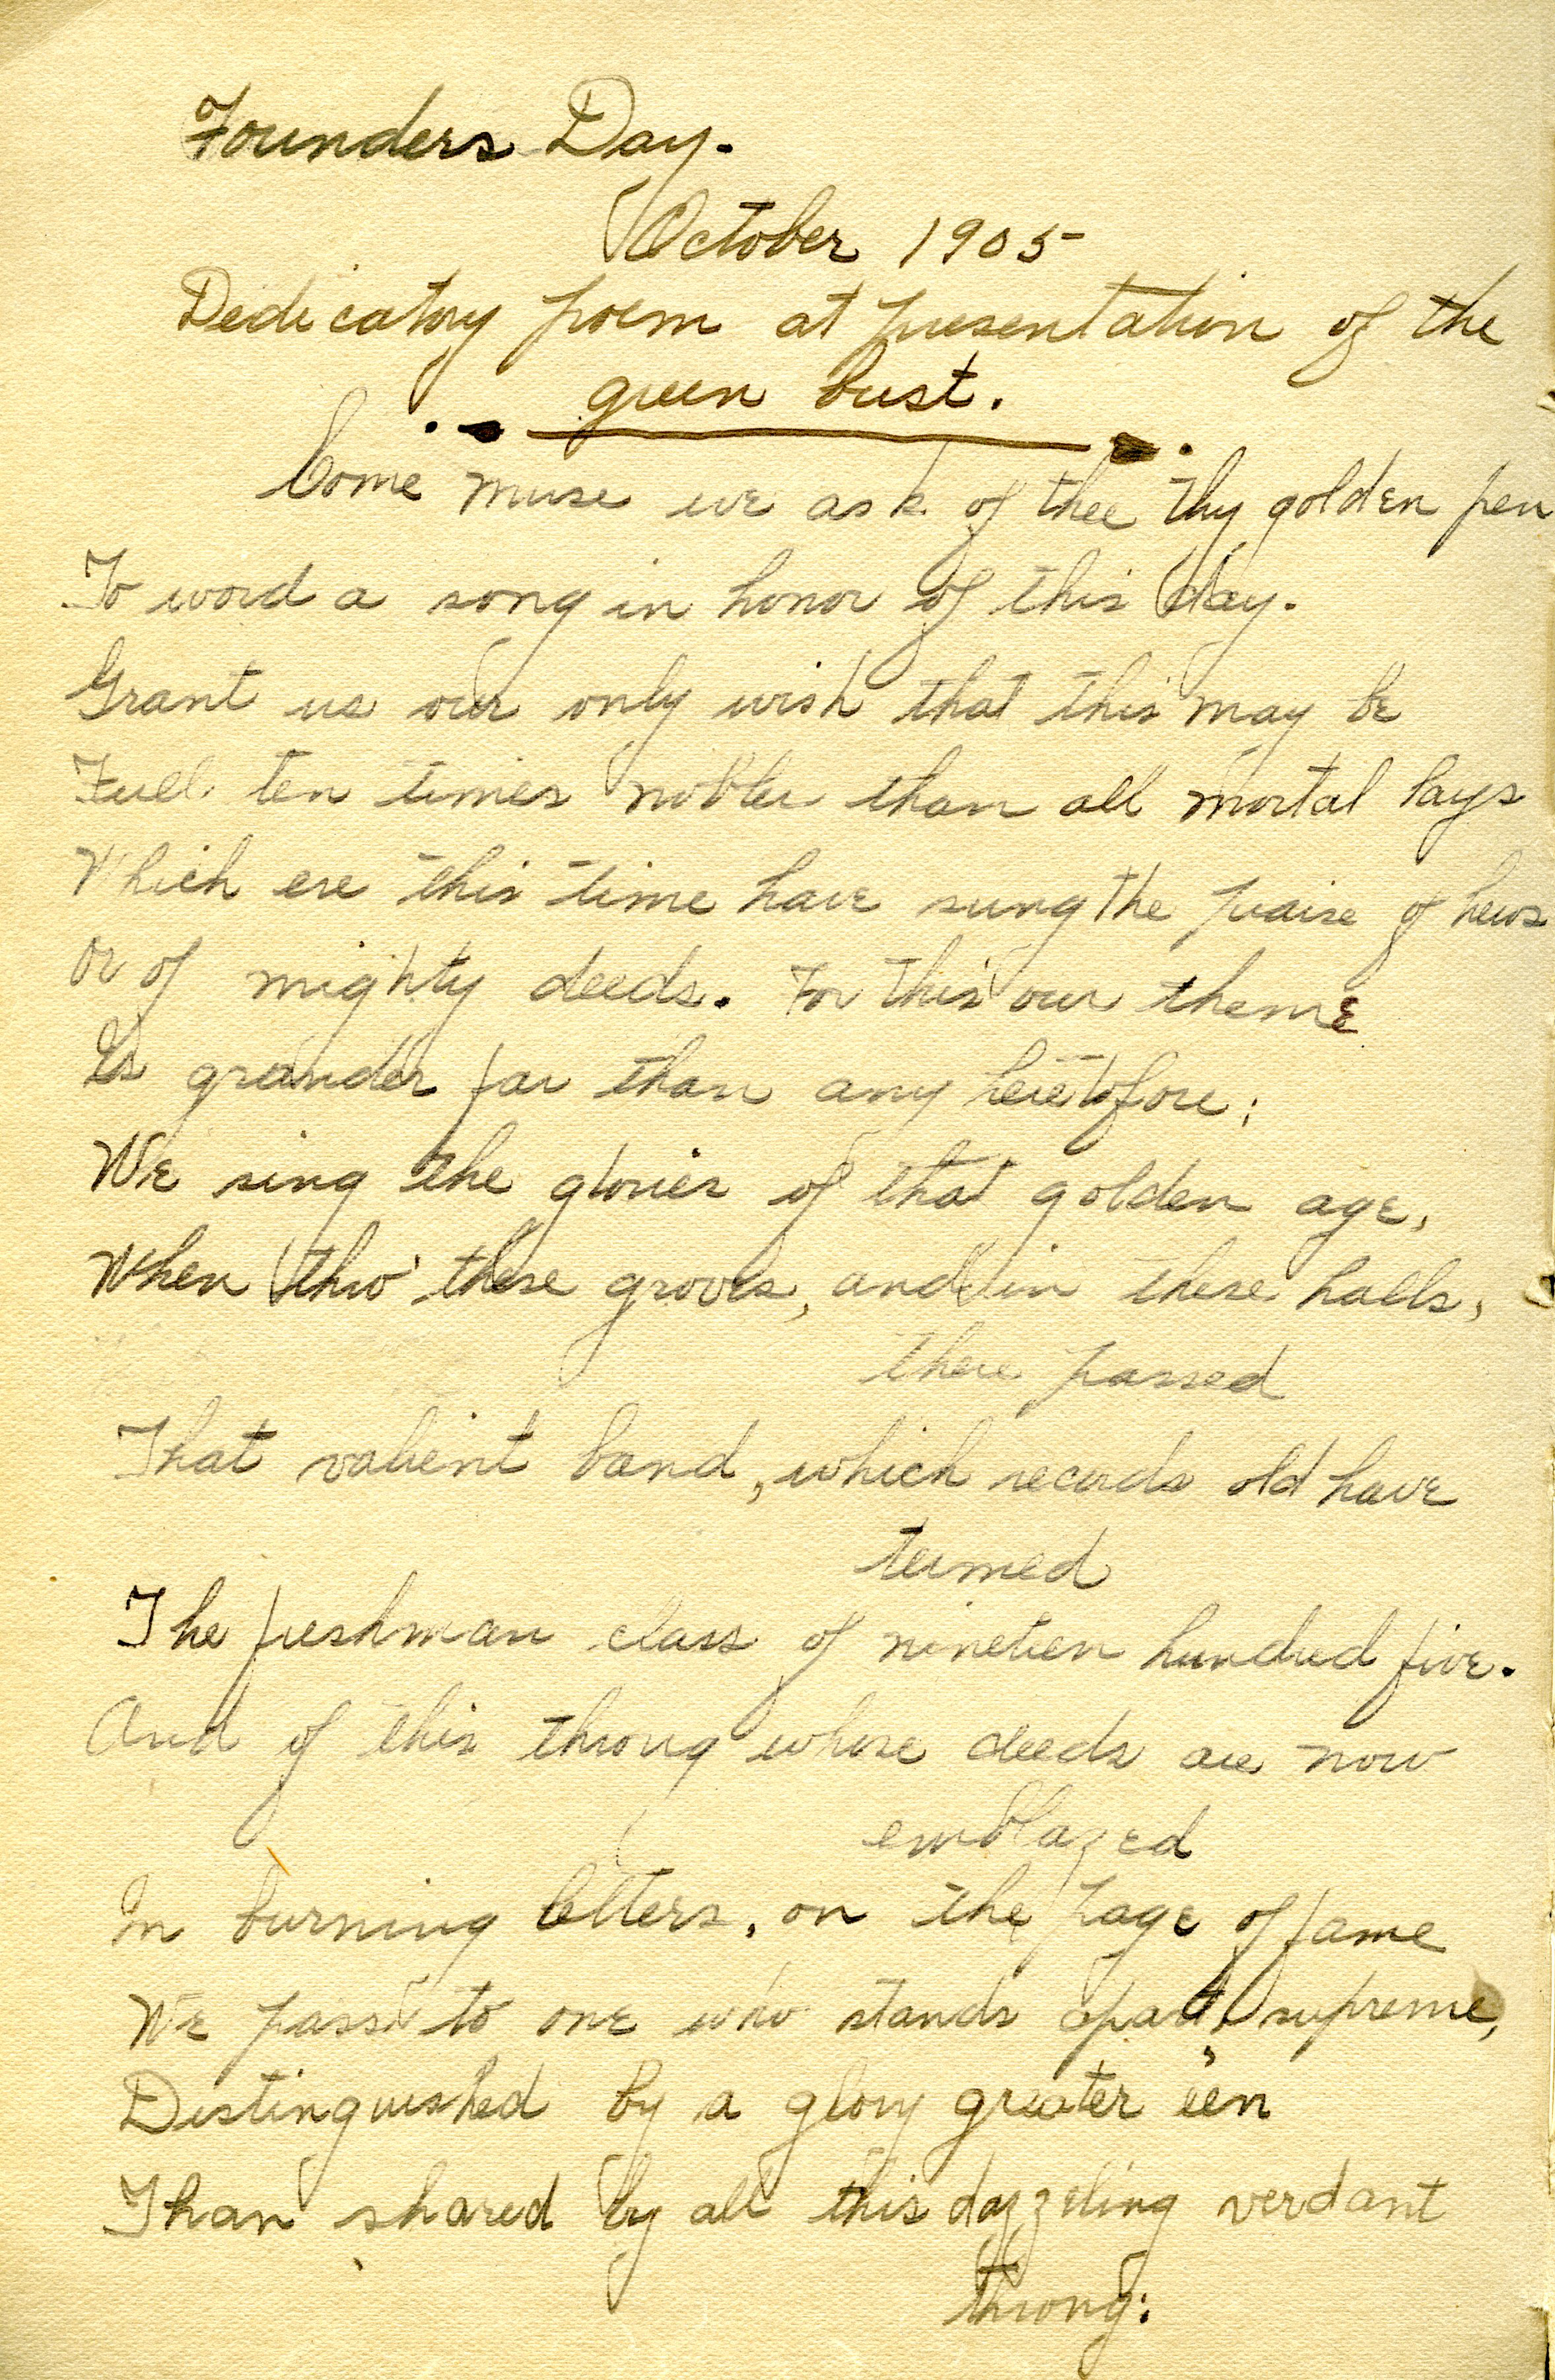 Founders Day.
October 1905
Dedicatory poem at presentation of the
green bust.
Come muse we ask of thee thy golden pen
To word a song in honor of this day.
Grant us our only wish that this may be
Full ten times nobler than all mortal lays
Which ere this time have sung the praise of heros
Or of mighty deeds. For this our theme
Is grander far than any heretofore;
We sing the glories of that golden age,
When thro' these groves, and in these halls,
there passed
That valient band, which records old have
termed
The freshman class of nineteen hundred five.
And of this throng whose deeds are now
emblazed
In burning letters, on the page of fame
We pass to one who stands apart, supreme,
Distinguished by a glory greater e'en
Than shared by all this dazzeling verdant
throng: